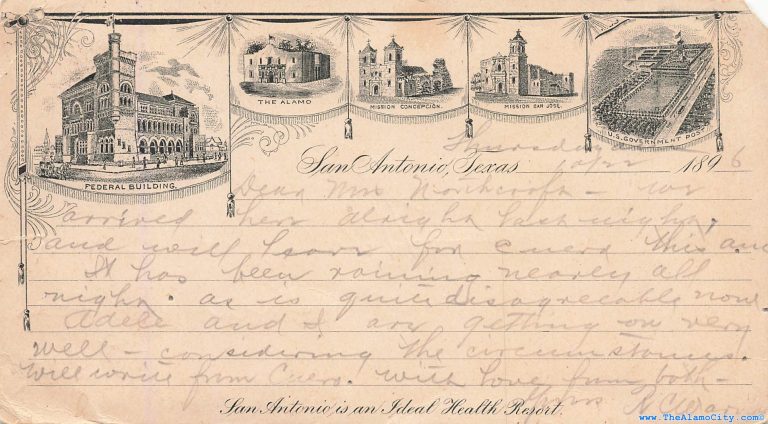 FEDERAL BUILDING.
THE ALAMO
MISSION CONCEPCIÓN.
MISSION SAN JOSÉ.
U.S. GOVERNMENT POST
Thursday
San Antonio, Texas 1896
Dear Mrs - we
arrived here alright last night,
and will leave for Cuero this am
It has been raining nearly all
night. as is quite disagreeable now
Adele and I are getting on very
well - considering the circumstances.
Will write from Cuero. With love from both -
San Antonio is an Ideal Health Resort.
Yours
www.TheAlamoCity.com©